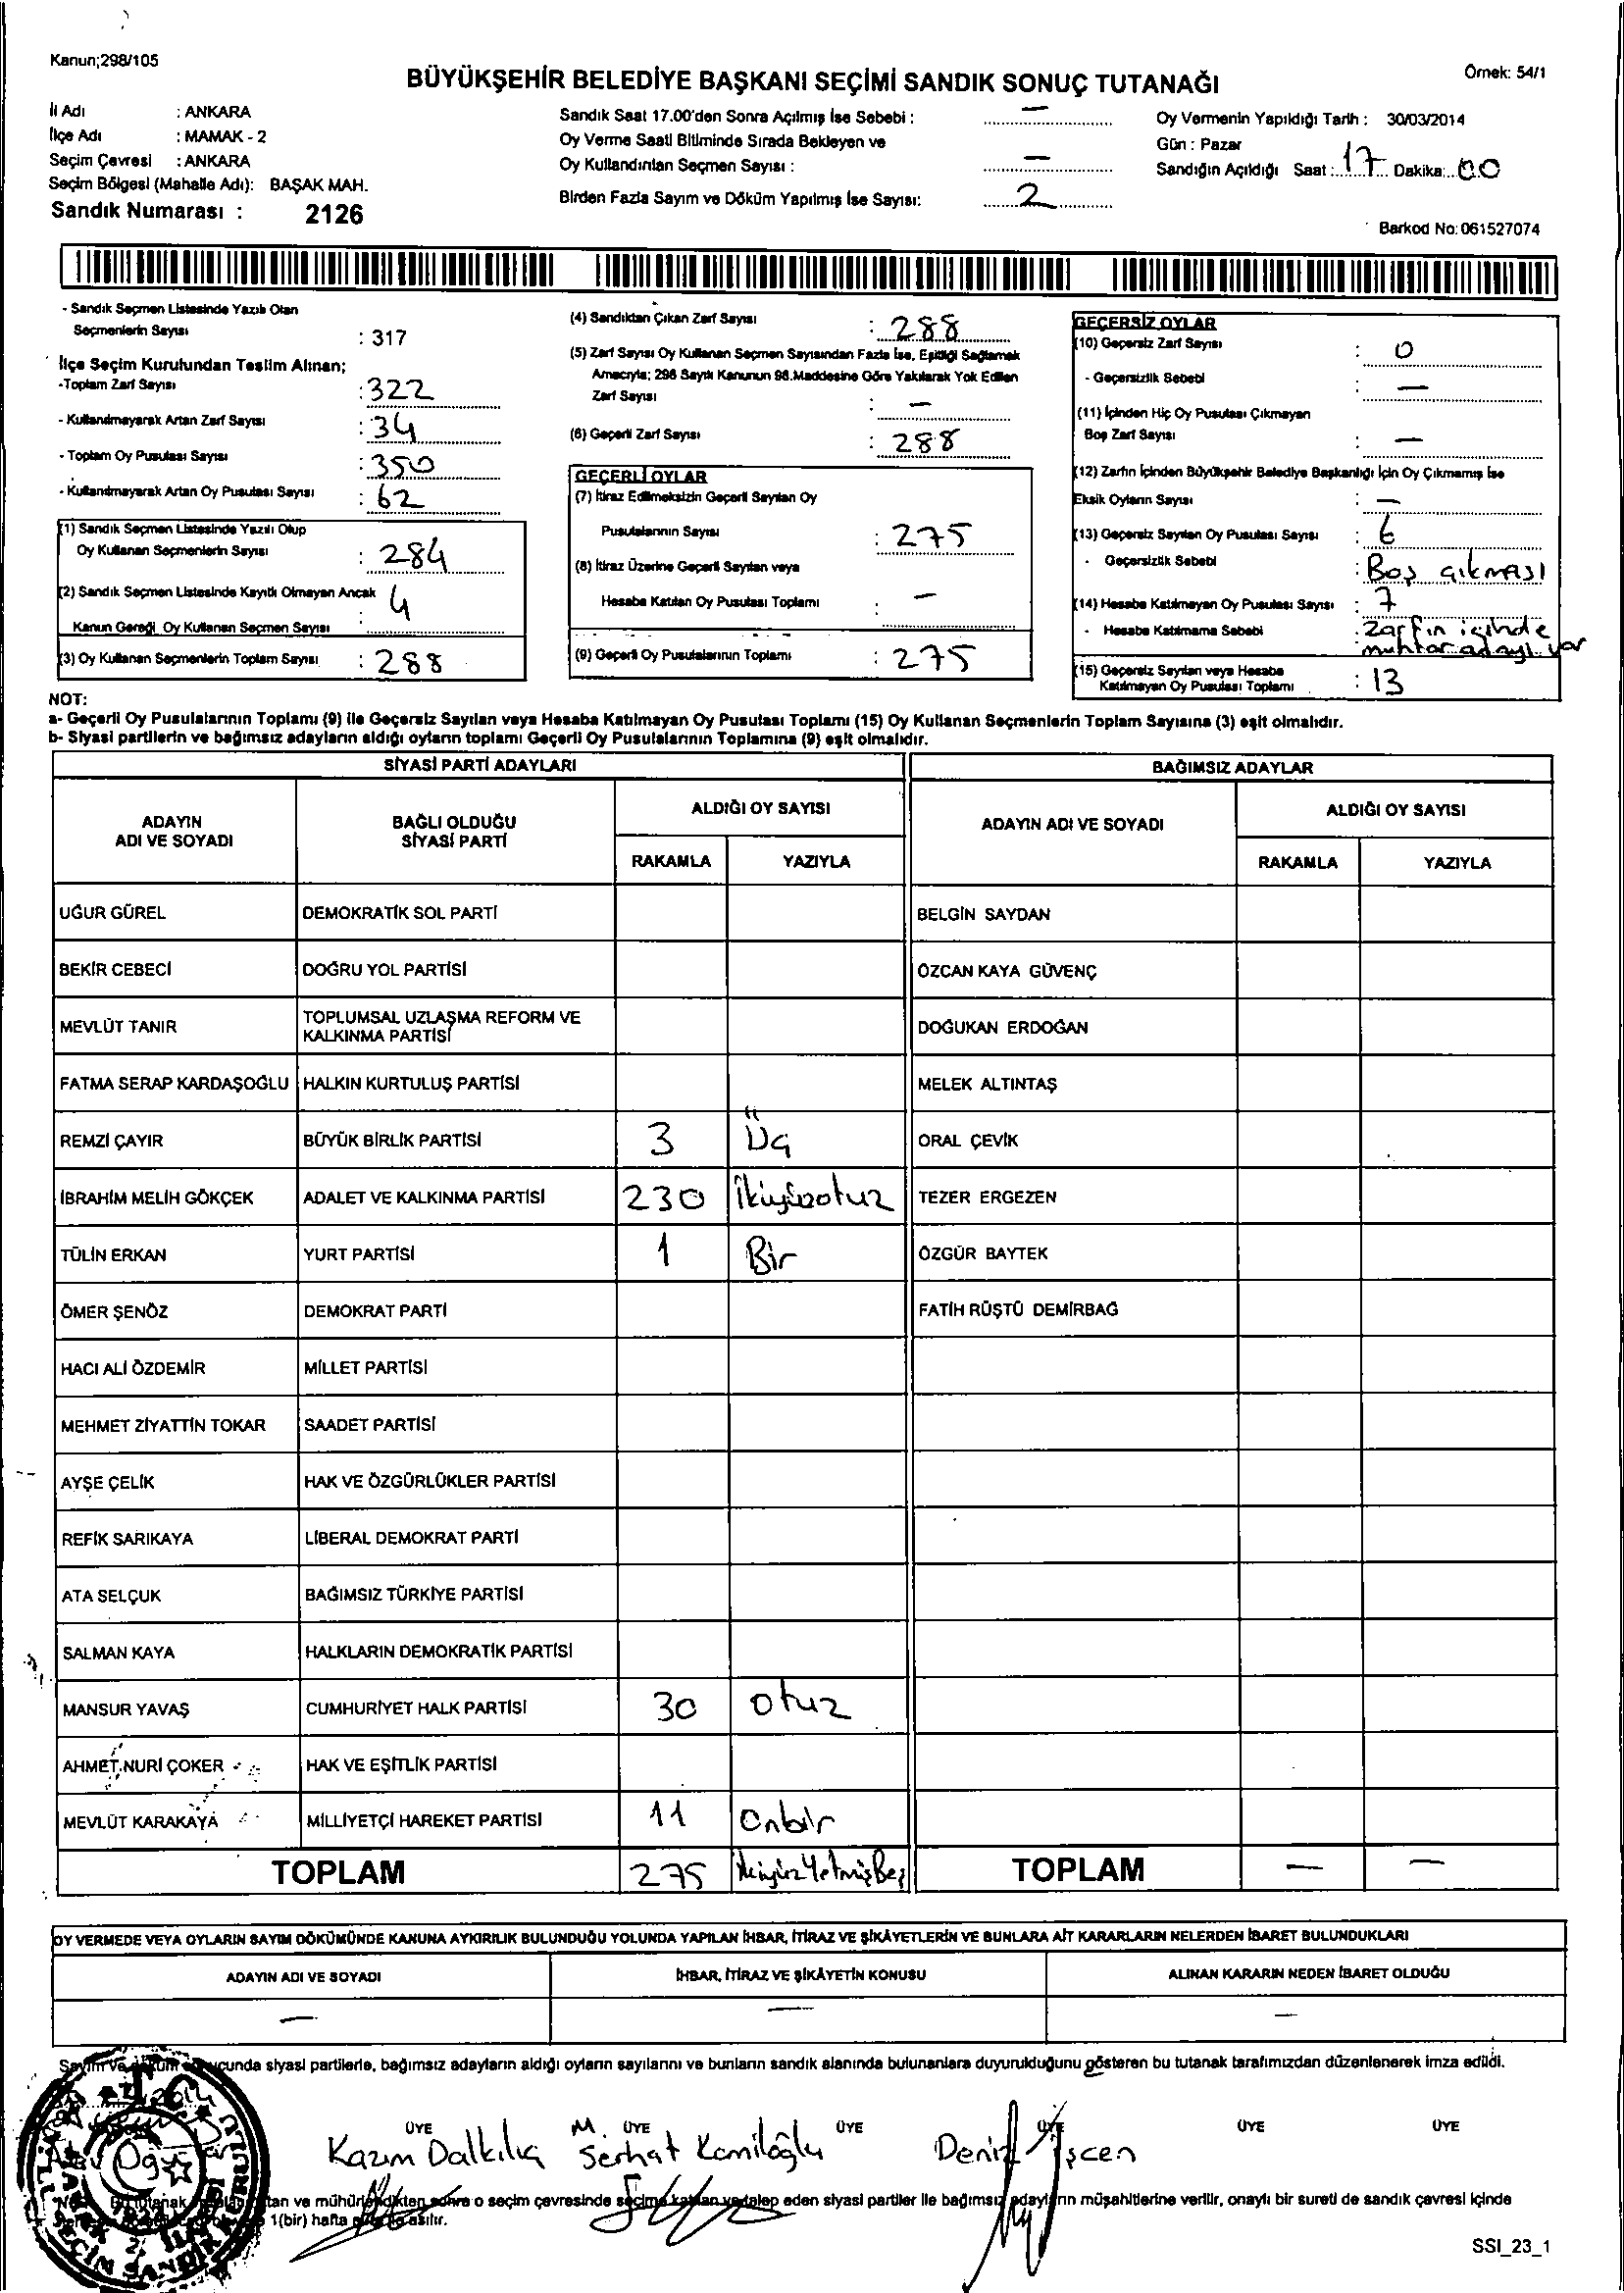 Kanun;298/105
Örnek: 54/1
BÜYÜKŞEHİR BELEDİYE BAŞKANI SEÇİMİ SANDIK SONUÇ TUTANAĞI
İl Adı : ANKARA
İlçe Adı : MAMAK - 2
Seçim Çevresi : ANKARA
Seçim Bölgesi (Mahalle Adı): BAŞAK MAH.
Sandık Numarası : 2126
Sandık Saat 17.00'den Sonra Açılmış İse Sebebi : —
Oy Verme Saati Bitiminde Sırada Bekleyen ve
Oy Kullandırılan Seçmen Sayısı : —
Birden Fazla Sayım ve Döküm Yapılmış İse Sayısı: 2
Oy Vermenin Yapıldığı Tarih : 30/03/2014
Gün : Pazar
Sandığın Açıldığı Saat : 17 Dakika: 00
Barkod No: 061527074
- Sandık Seçmen Listesinde Yazılı Olan
Seçmenlerin Sayısı : 317
İlçe Seçim Kurulundan Teslim Alınan;
-Toplam Zarf Sayısı : 322
- Kullanılmayarak Artan Zarf Sayısı : 34
- Toplam Oy Pusulası Sayısı : 350
- Kullanılmayarak Artan Oy Pusulası Sayısı : 62
(1) Sandık Seçmen Listesinde Yazılı Olup
Oy Kullanan Seçmenlerin Sayısı : 284
(2) Sandık Seçmen Listesinde Kayıtlı Olmayan Ancak
Kanun Gereği Oy Kullanan Seçmen Sayısı : 4
(3) Oy Kullanan Seçmenlerin Toplam Sayısı : 288
(4) Sandıktan Çıkan Zarf Sayısı : 288
(5) Zarf Sayısı Oy Kullanan Seçmen Sayısından Fazla İse, Eşitliği Sağlamak
Amacıyla; 298 Sayılı Kanunun 98.Maddesine Göre Yakılarak Yok Edilen
Zarf Sayısı : —
(6) Geçerli Zarf Sayısı : 288
GEÇERLİ OYLAR
(7) İtiraz Edilmeksizin Geçerli Sayılan Oy
Pusulalarının Sayısı : 275
(8) İtiraz Üzerine Geçerli Sayılan veya
Hesaba Katılan Oy Pusulası Toplamı : —
(9) Geçerli Oy Pusulalarının Toplamı : 275
GEÇERSİZ OYLAR
(10) Geçersiz Zarf Sayısı : 0
- Geçersizlik Sebebi : —
(11) İçinden Hiç Oy Pusulası Çıkmayan
Boş Zarf Sayısı : —
(12) Zarfın İçinden Büyükşehir Belediye Başkanlığı İçin Oy Çıkmamış İse
Eksik Oyların Sayısı : —
(13) Geçersiz Sayılan Oy Pusulası Sayısı : 6
- Geçersizlik Sebebi : Boş çıkması
(14) Hesaba Katılmayan Oy Pusulası Sayısı : 7
- Hesaba Katılmama Sebebi : zarfın içinde
muhtar adayı var
(15) Geçersiz Sayılan veya Hesaba
Katılmayan Oy Pusulası Toplamı : 13
NOT:
a- Geçerli Oy Pusulalarının Toplamı (9) ile Geçersiz Sayılan veya Hesaba Katılmayan Oy Pusulası Toplamı (15) Oy Kullanan Seçmenlerin Toplam Sayısına (3) eşit olmalıdır.
b- Siyasi partilerin ve bağımsız adayların aldığı oyların toplamı Geçerli Oy Pusulalarının Toplamına (9) eşit olmalıdır.
SİYASİ PARTİ ADAYLARI BAĞIMSIZ ADAYLAR
ADAYIN ADI VE SOYADI BAĞLI OLDUĞU SİYASİ PARTİ ALDIĞI OY SAYISI ADAYIN ADI VE SOYADI ALDIĞI OY SAYISI
RAKAMLA YAZIYLA RAKAMLA YAZIYLA
UĞUR GÜREL DEMOKRATİK SOL PARTİ BELGİN SAYDAN
BEKİR CEBECİ DOĞRU YOL PARTİSİ ÖZCAN KAYA GÜVENÇ
MEVLÜT TANIR TOPLUMSAL UZLAŞMA REFORM VE KALKINMA PARTİSİ DOĞUKAN ERDOĞAN
FATMA SERAP KARDAŞOĞLU HALKIN KURTULUŞ PARTİSİ MELEK ALTINTAŞ
REMZİ ÇAYIR BÜYÜK BİRLİK PARTİSİ 3 Üç ORAL ÇEVİK
İBRAHİM MELİH GÖKÇEK ADALET VE KALKINMA PARTİSİ 230 İkiyüzotuz TEZER ERGEZEN
TÜLİN ERKAN YURT PARTİSİ 1 Bir ÖZGÜR BAYTEK
ÖMER ŞENÖZ DEMOKRAT PARTİ FATİH RÜŞTÜ DEMİRBAĞ
HACI ALİ ÖZDEMİR MİLLET PARTİSİ
MEHMET ZİYATTİN TOKAR SAADET PARTİSİ
AYŞE ÇELİK HAK VE ÖZGÜRLÜKLER PARTİSİ
REFİK SARIKAYA LİBERAL DEMOKRAT PARTİ
ATA SELÇUK BAĞIMSIZ TÜRKİYE PARTİSİ
SALMAN KAYA HALKLARIN DEMOKRATİK PARTİSİ
MANSUR YAVAŞ CUMHURİYET HALK PARTİSİ 30 otuz
AHMET NURİ ÇOKER HAK VE EŞİTLİK PARTİSİ
MEVLÜT KARAKAYA MİLLİYETÇİ HAREKET PARTİSİ 11 Onbir
TOPLAM 275 İkiyüzYetmişBeş TOPLAM — —
OY VERMEDE VEYA OYLARIN SAYIM DÖKÜMÜNDE KANUNA AYKIRILIK BULUNDUĞU YOLUNDA YAPILAN İHBAR, İTİRAZ VE ŞİKÂYETLERİN VE BUNLARA AİT KARARLARIN NELERDEN İBARET BULUNDUKLARI
ADAYIN ADI VE SOYADI İHBAR, İTİRAZ VE ŞİKÂYETİN KONUSU ALINAN KARARIN NEDEN İBARET OLDUĞU
— — —
Sayım ve döküm sonucunda siyasi partilerle, bağımsız adayların aldığı oyların sayılarını ve bunların sandık alanında bulunanlara duyurulduğunu gösteren bu tutanak tarafımızdan düzenlenerek imza edildi.
ÜYE ÜYE ÜYE ÜYE ÜYE ÜYE
Kazım Dalkılıç M. Serhat Kamiloğlu Deniz İşcen
tan ve mühürlendikten sonra o seçim çevresinde seçime katılan ve talep eden siyasi partiler ile bağımsız adayların müşahitlerine verilir, onaylı bir sureti de sandık çevresi içinde
1(bir) hafta asılır.
SSI_23_1